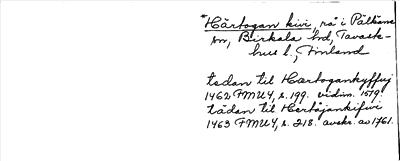 *Härtogan kivi, rå i Pälkäne
sn, Birkala hd, Tavast-
hus l., Finland
tedan til Hærtogankyffwj
1462 FMU4, s. 199. vidim. 1579.
tädan til Hertöjankifwi
1463 FMU4, s. 218. avskr. av 1761.